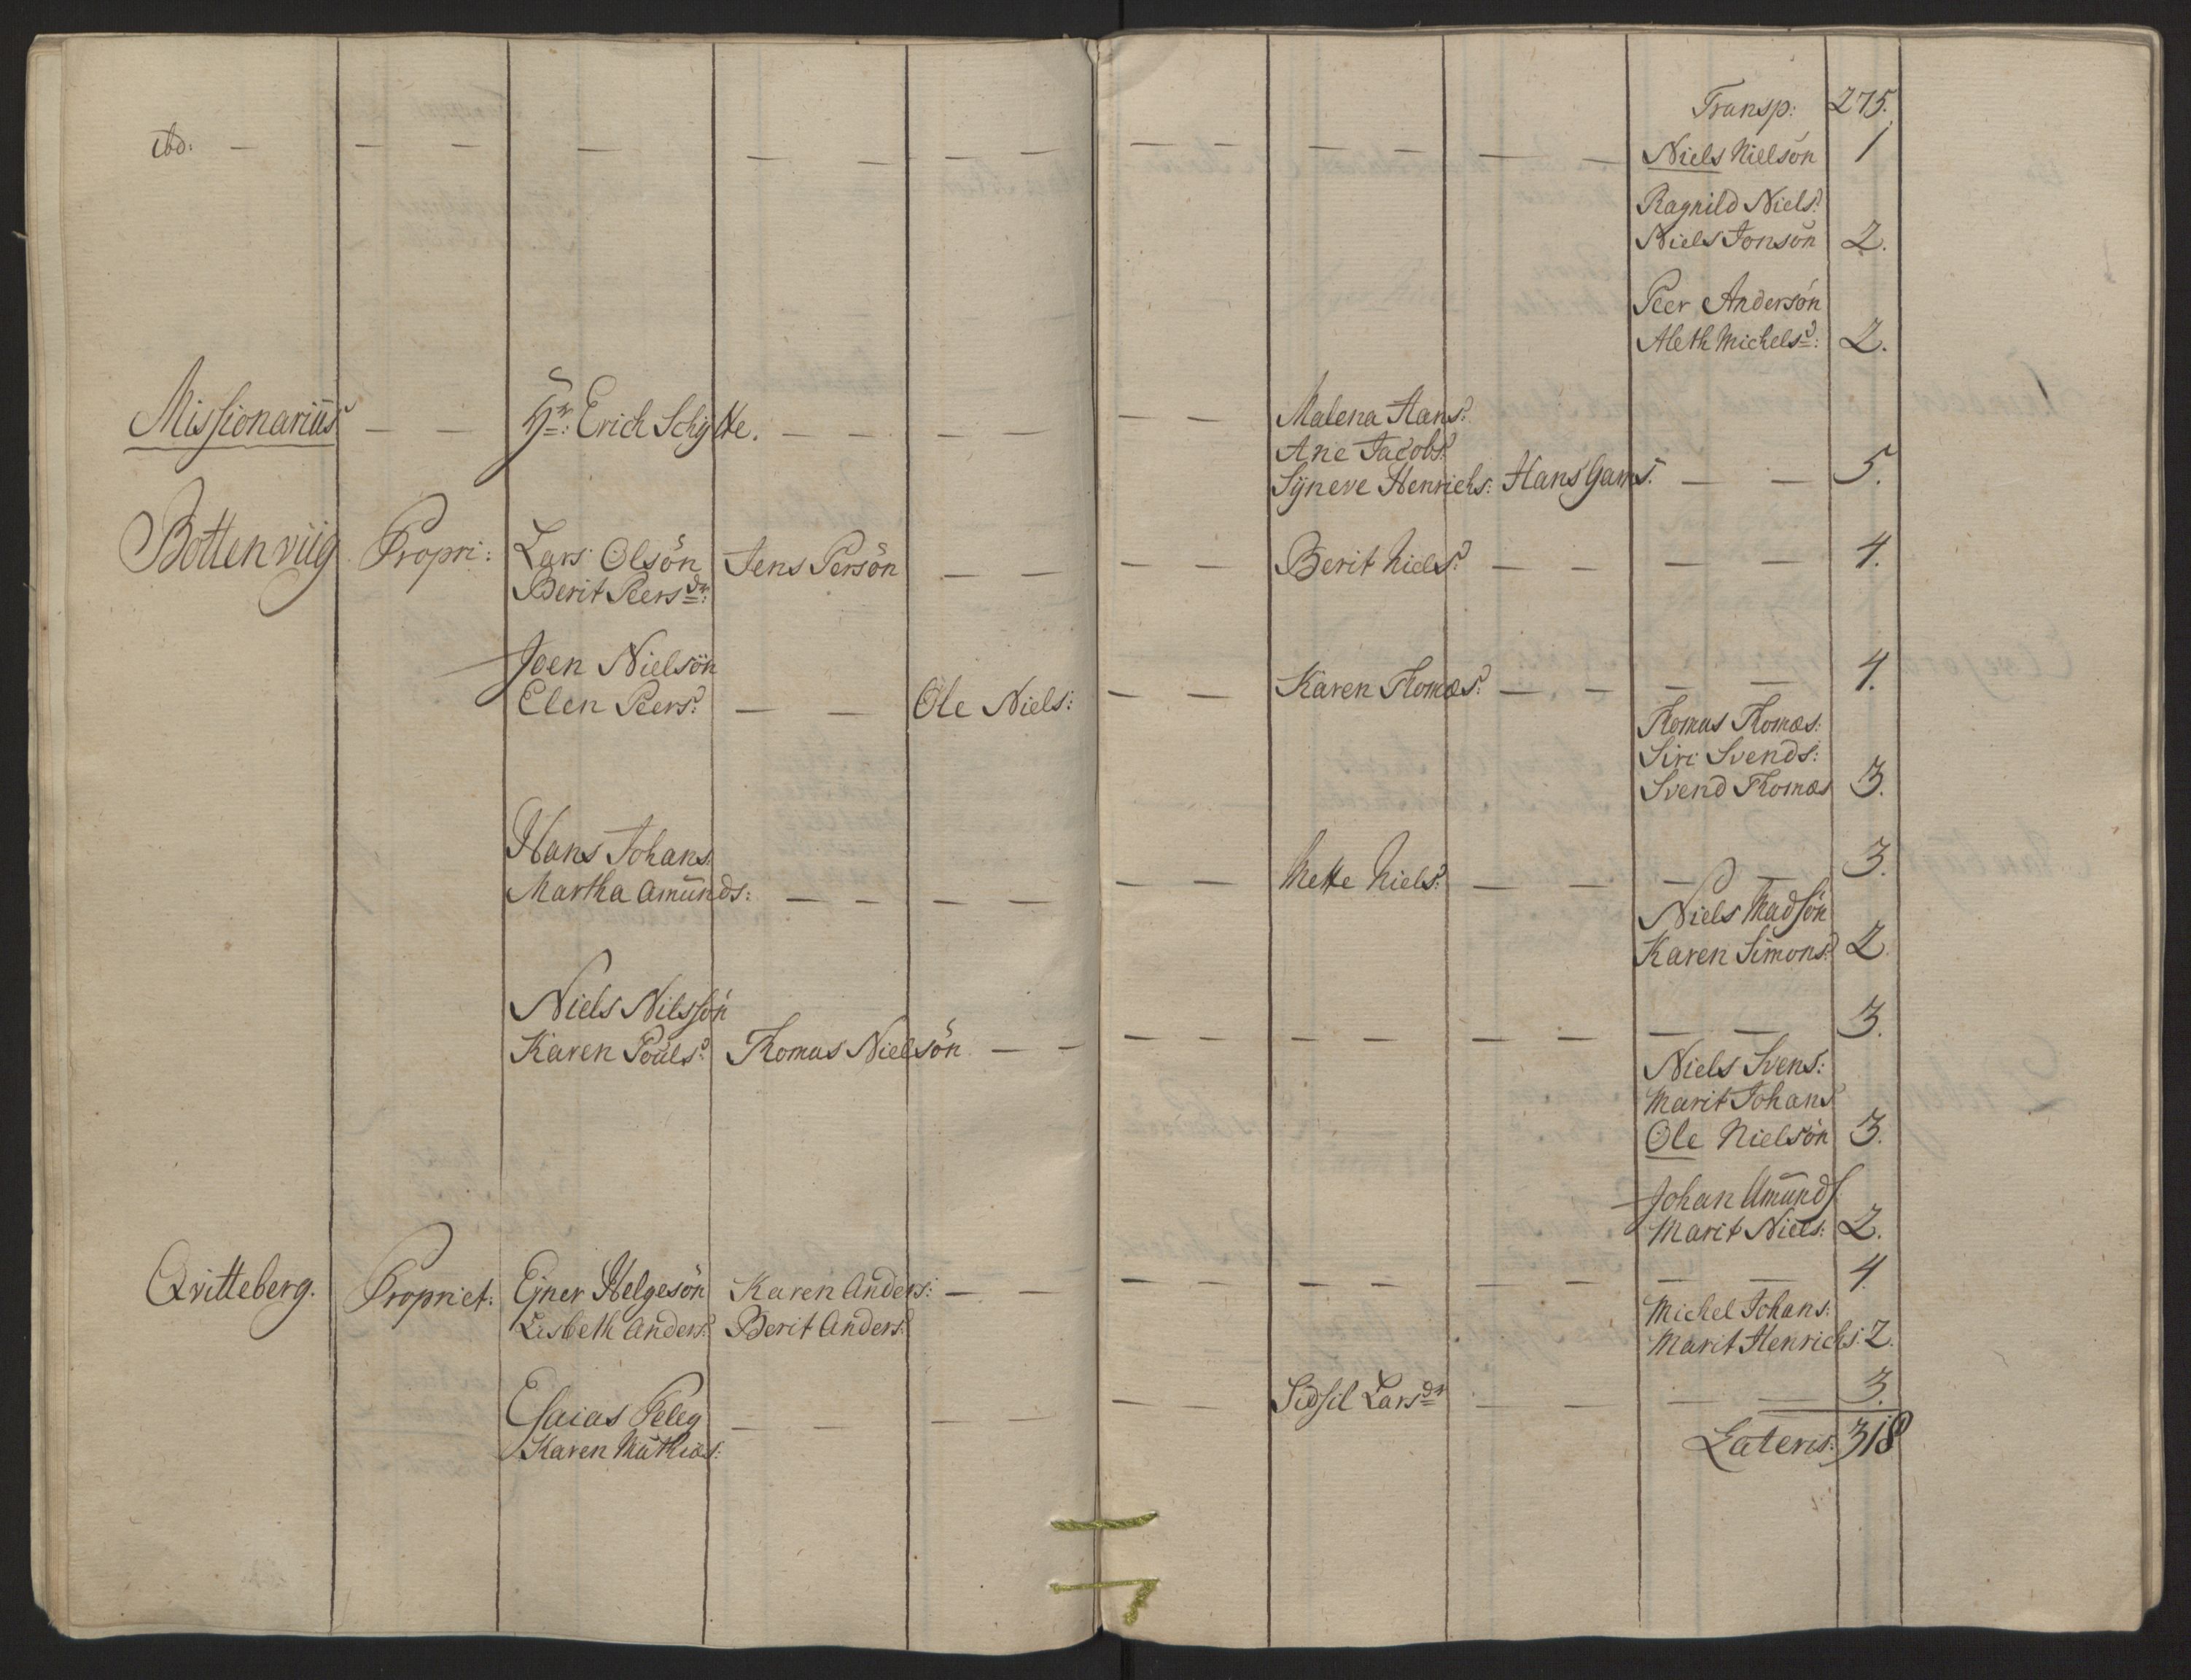 Transp: 275.
ibd: — — — — — — — — — — — — — — — Niels Nielsön 1
Ragnild Niels:
Niels Jonsön 2.
Peer Andersön
Aleth Michels: 2.
Missionariüs — — Hr: Erich Schytte. — — — — — Malena Hans:
Ane Jacobs:
Syneve Henrichs: Hans Gams: — — 5.
Bottenviig Propri: Lars Olsön Jens Persön — — — — Berit Niels: — — — — 4.
Berit Peersdr:
Joen Nielsön
Elen Peers: — — Ole Niels: — — Karen Thomæs: — — — — 4.
Thomas Thomæs:
Siri Svends:
Svend Thomæs 3.
Hans Johans:
Martha Amünds: — — — — — — Mette Niels: — — — — 3.
Niels Madsön
Karen Simons: 2
Niels Nilssön
Karen Pouls: Thomas Nielsön — — — — — — — — — — 3.
Niels Svens:
Marit Johans
Ole Nielsön 3.
Johan Amünds
Marit Niels: 2.
Qvitteberg. Propriet: Ejner Helgesön Karen Anders: — — — — — — — — — — 4
Lisbeth Anders: Berit Anders:
Michel Johans:
Marit Henrichs: 2.
Esaias Peleg — — — — — Sidsil Larsdr — — — — 3.
Karen Mathias:
Lateris: 318